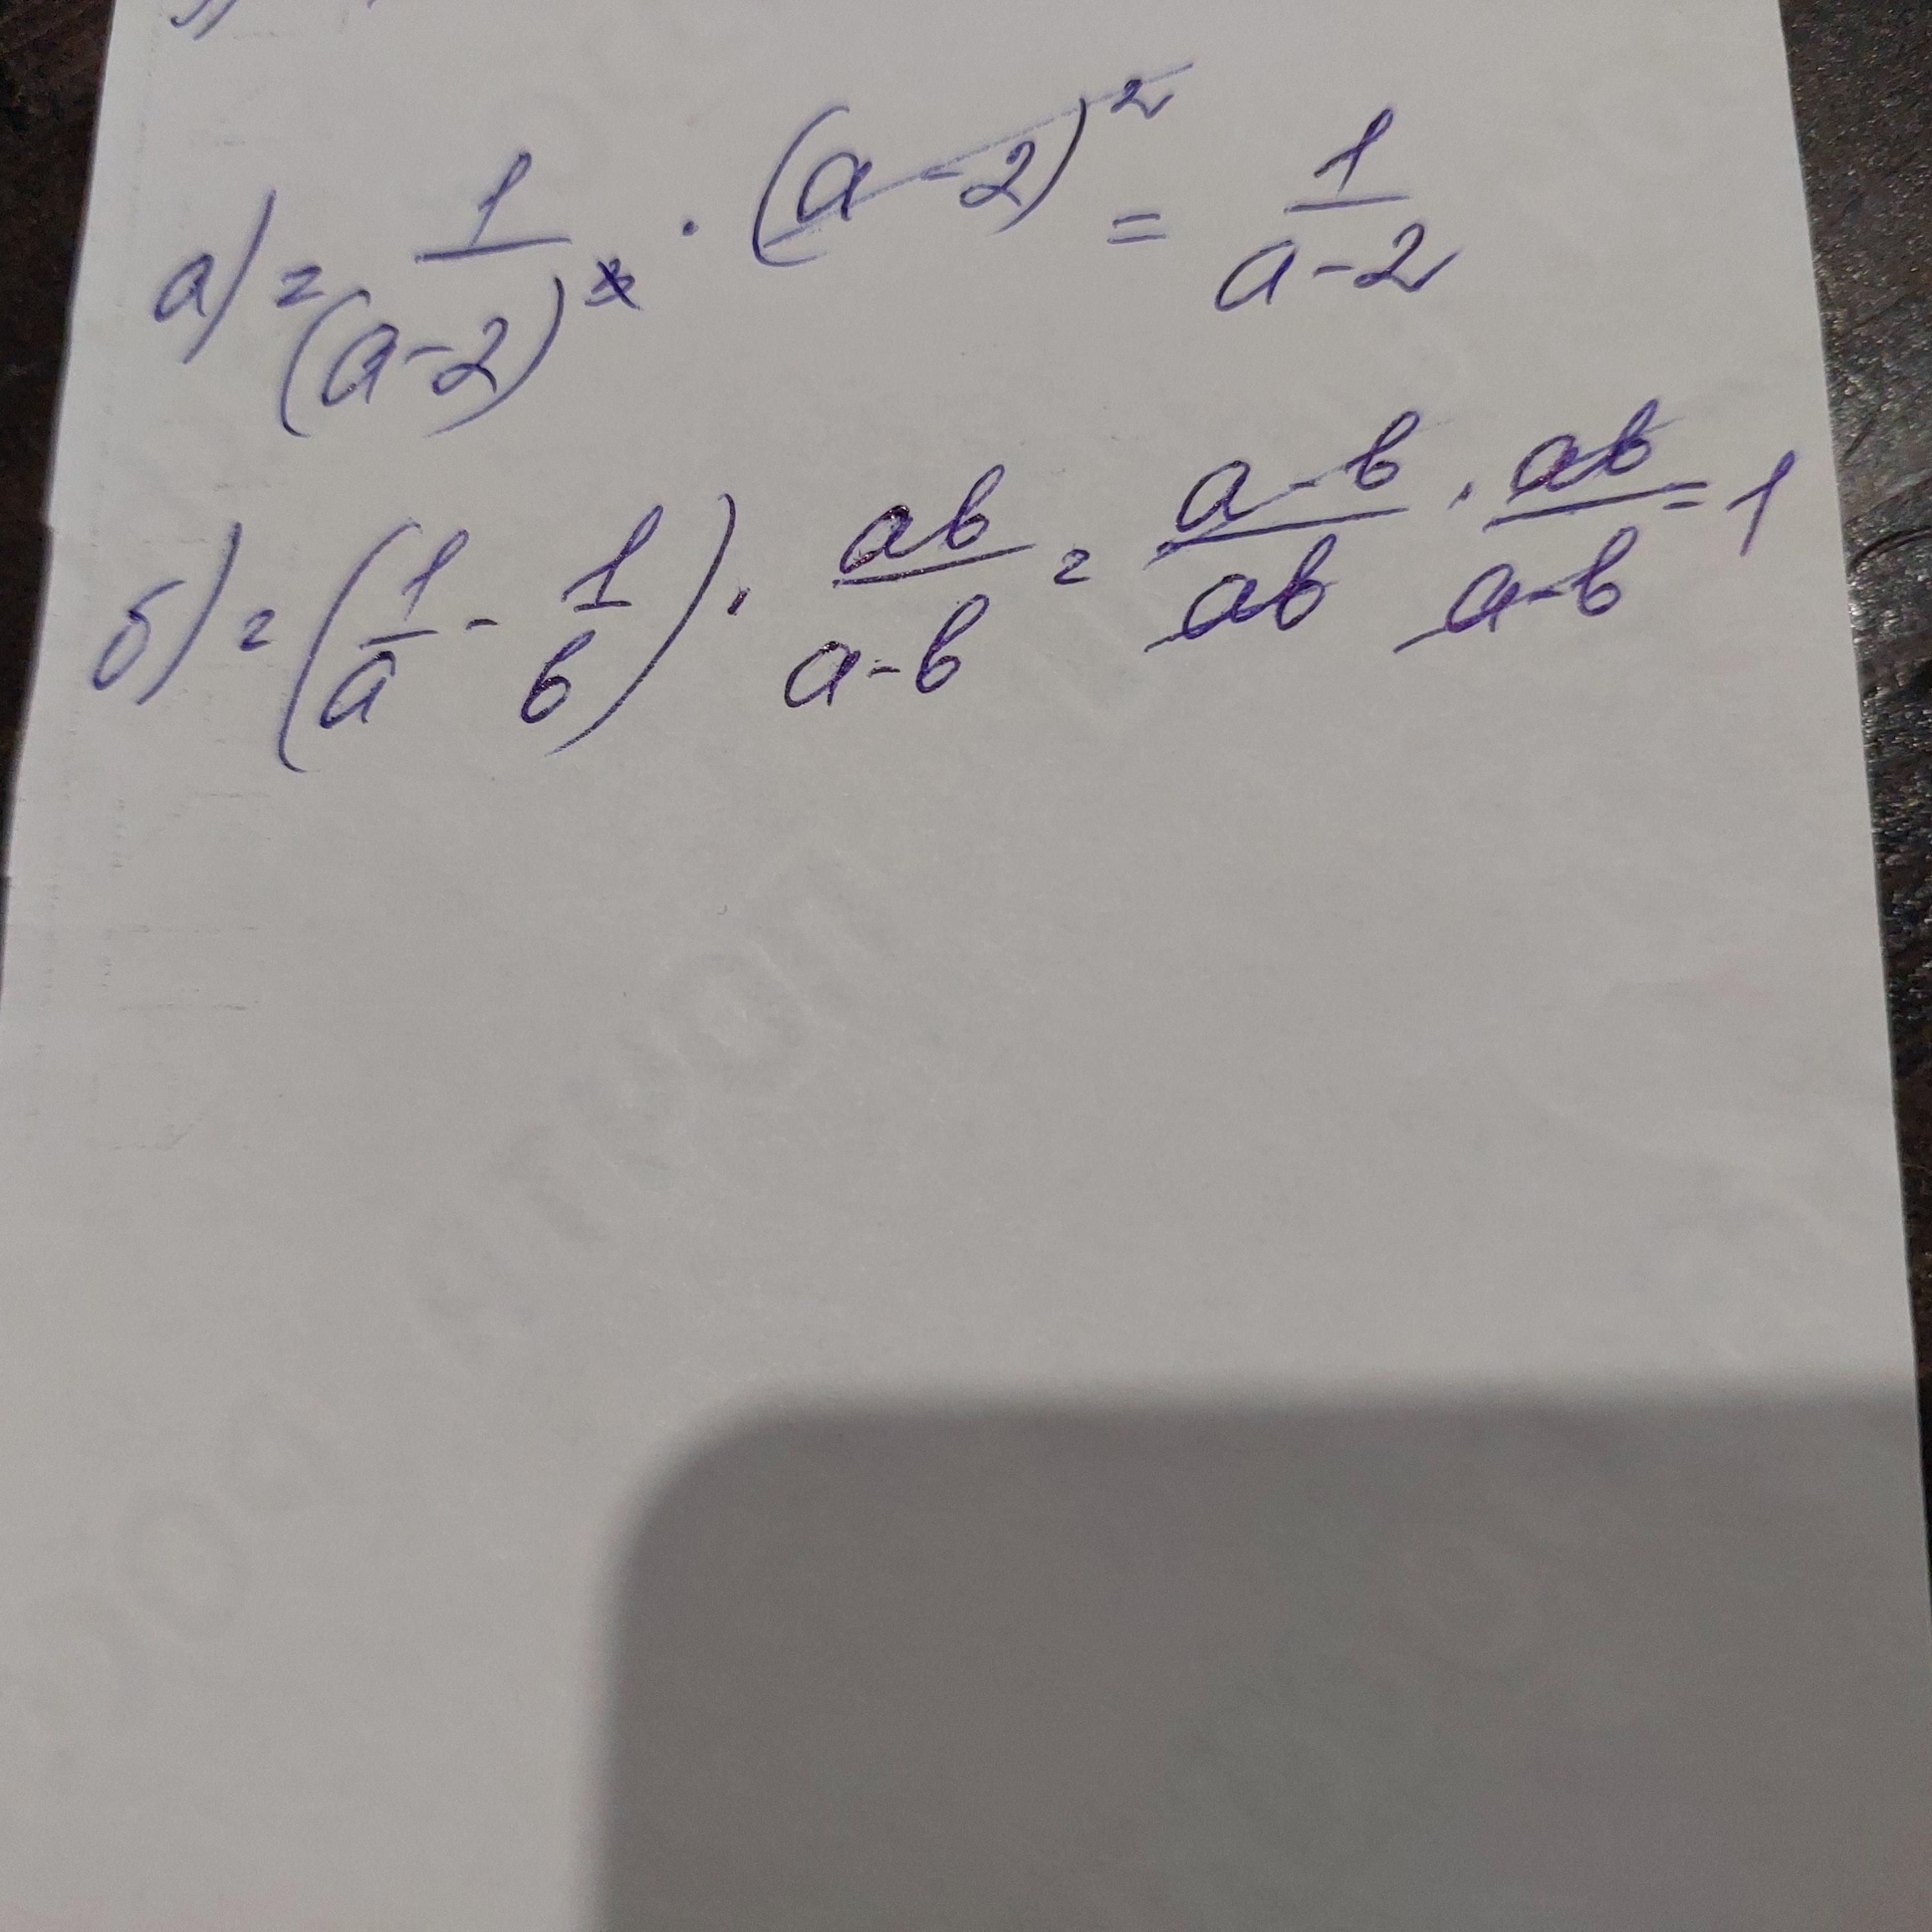 а) = 1/(a-2)^3 · (a-2)^2 = 1/(a-2)
б) = (1/a - 1/b) · ab/(a-b) = (a-b)/ab · ab/(a-b) = 1